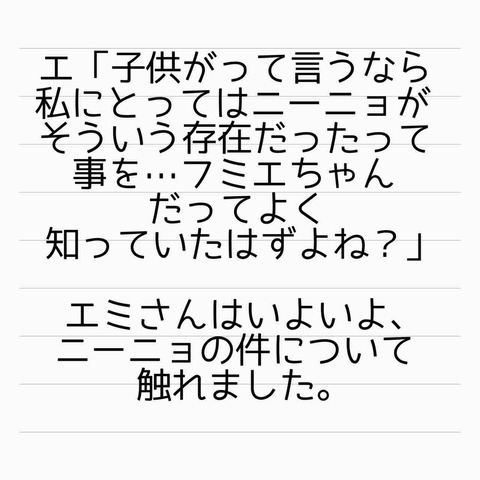 エ「子供がって言うなら
私にとってはニーニョが
そういう存在だったって
事を…フミエちゃん
だってよく
知っていたはずよね？」
エミさんはいよいよ、
ニーニョの件について
触れました。